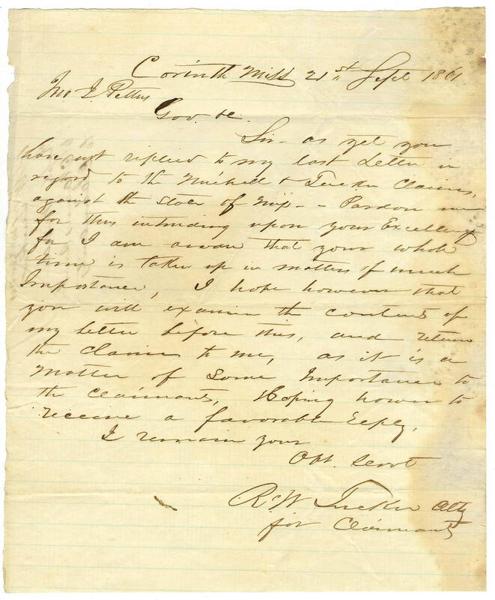 Corinth Miss 21st Sept 1861
Jno J Pettus
Gov. &c.
Sir - as yet you
have not replied to my last Letter in
regard to the Mitchell & Tucker Claims,
against the State of Miss - - Pardon me
for thus intruding upon your Excellency
for I am aware that your whole
time is taken up in matters of much
Importance, I hope however that
you will examine the contents of
my letter before this, and return
the claims to me, as it is a
Matter of Some Importance to
the claimants, Hoping
receive a favorable Reply,
I remain your
Obt. Servt
R W Tucker Atty
for Claimants